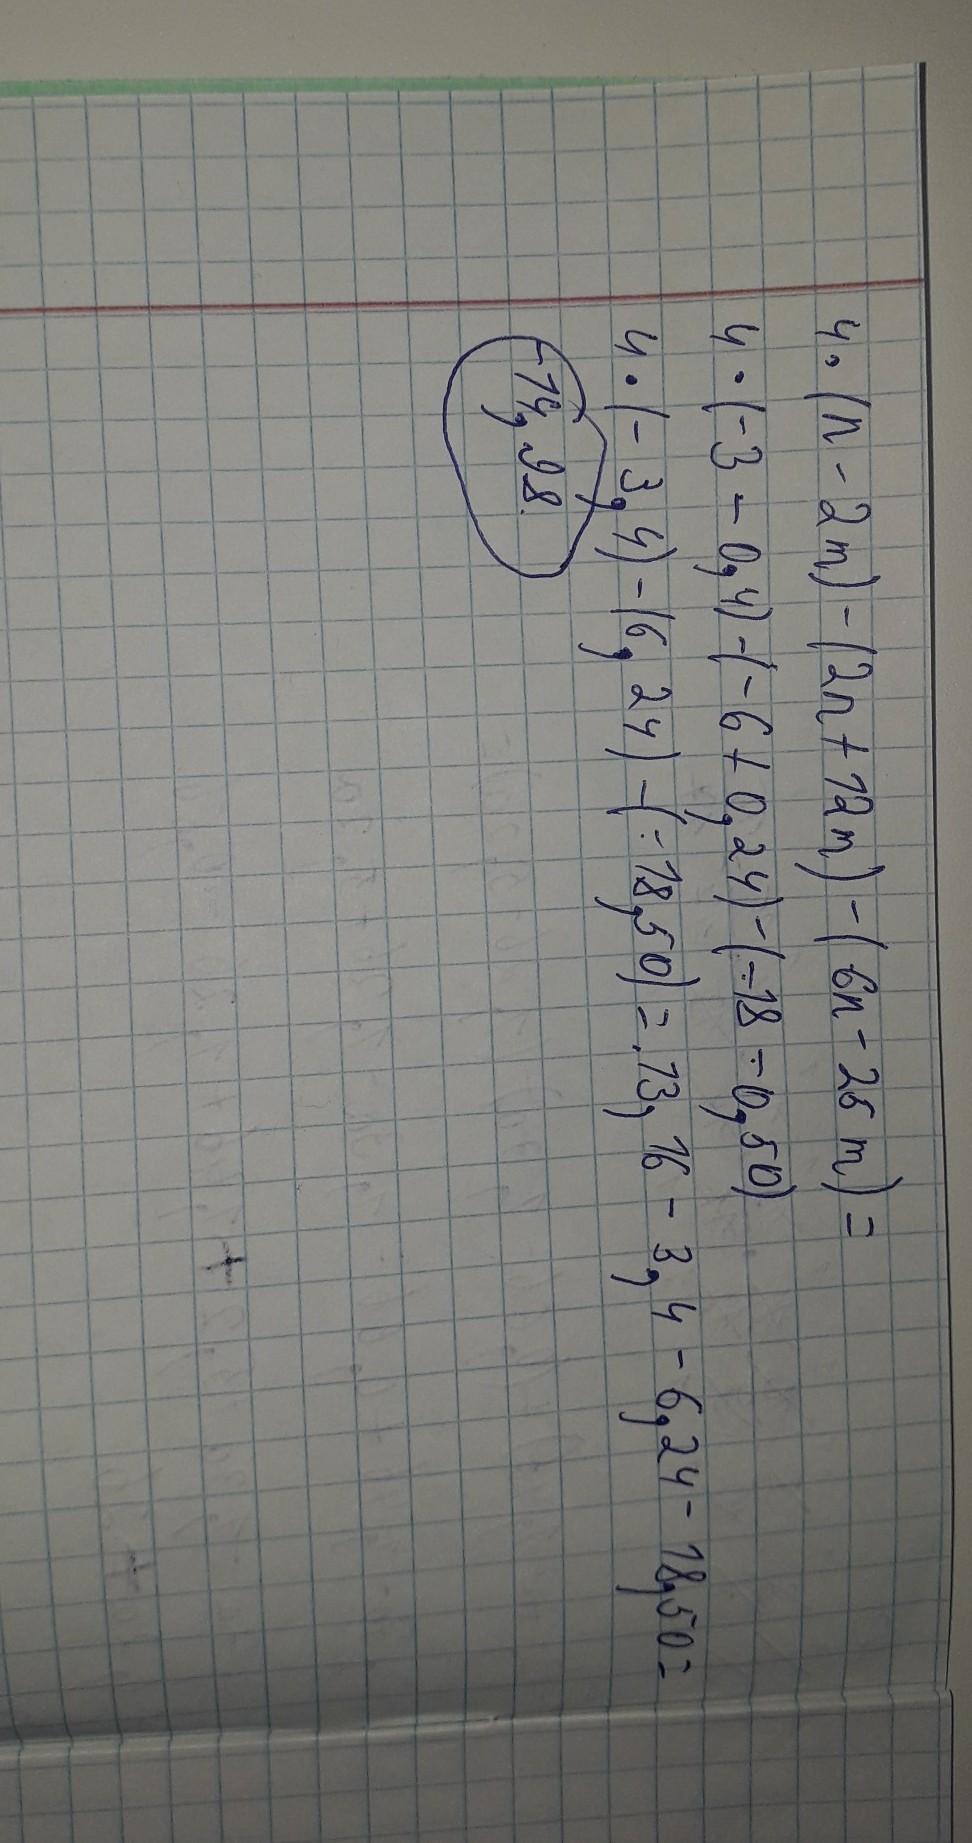 4·(n-2m)-(2n+12m)-(6n-25m)=
4·(-3-0,4)-(-6+0,24)-(-18-0,50)
4·(-3,4)-(6,24)-(-18,50)=.13,16-3,4-6,24-18,50=
-14,98.